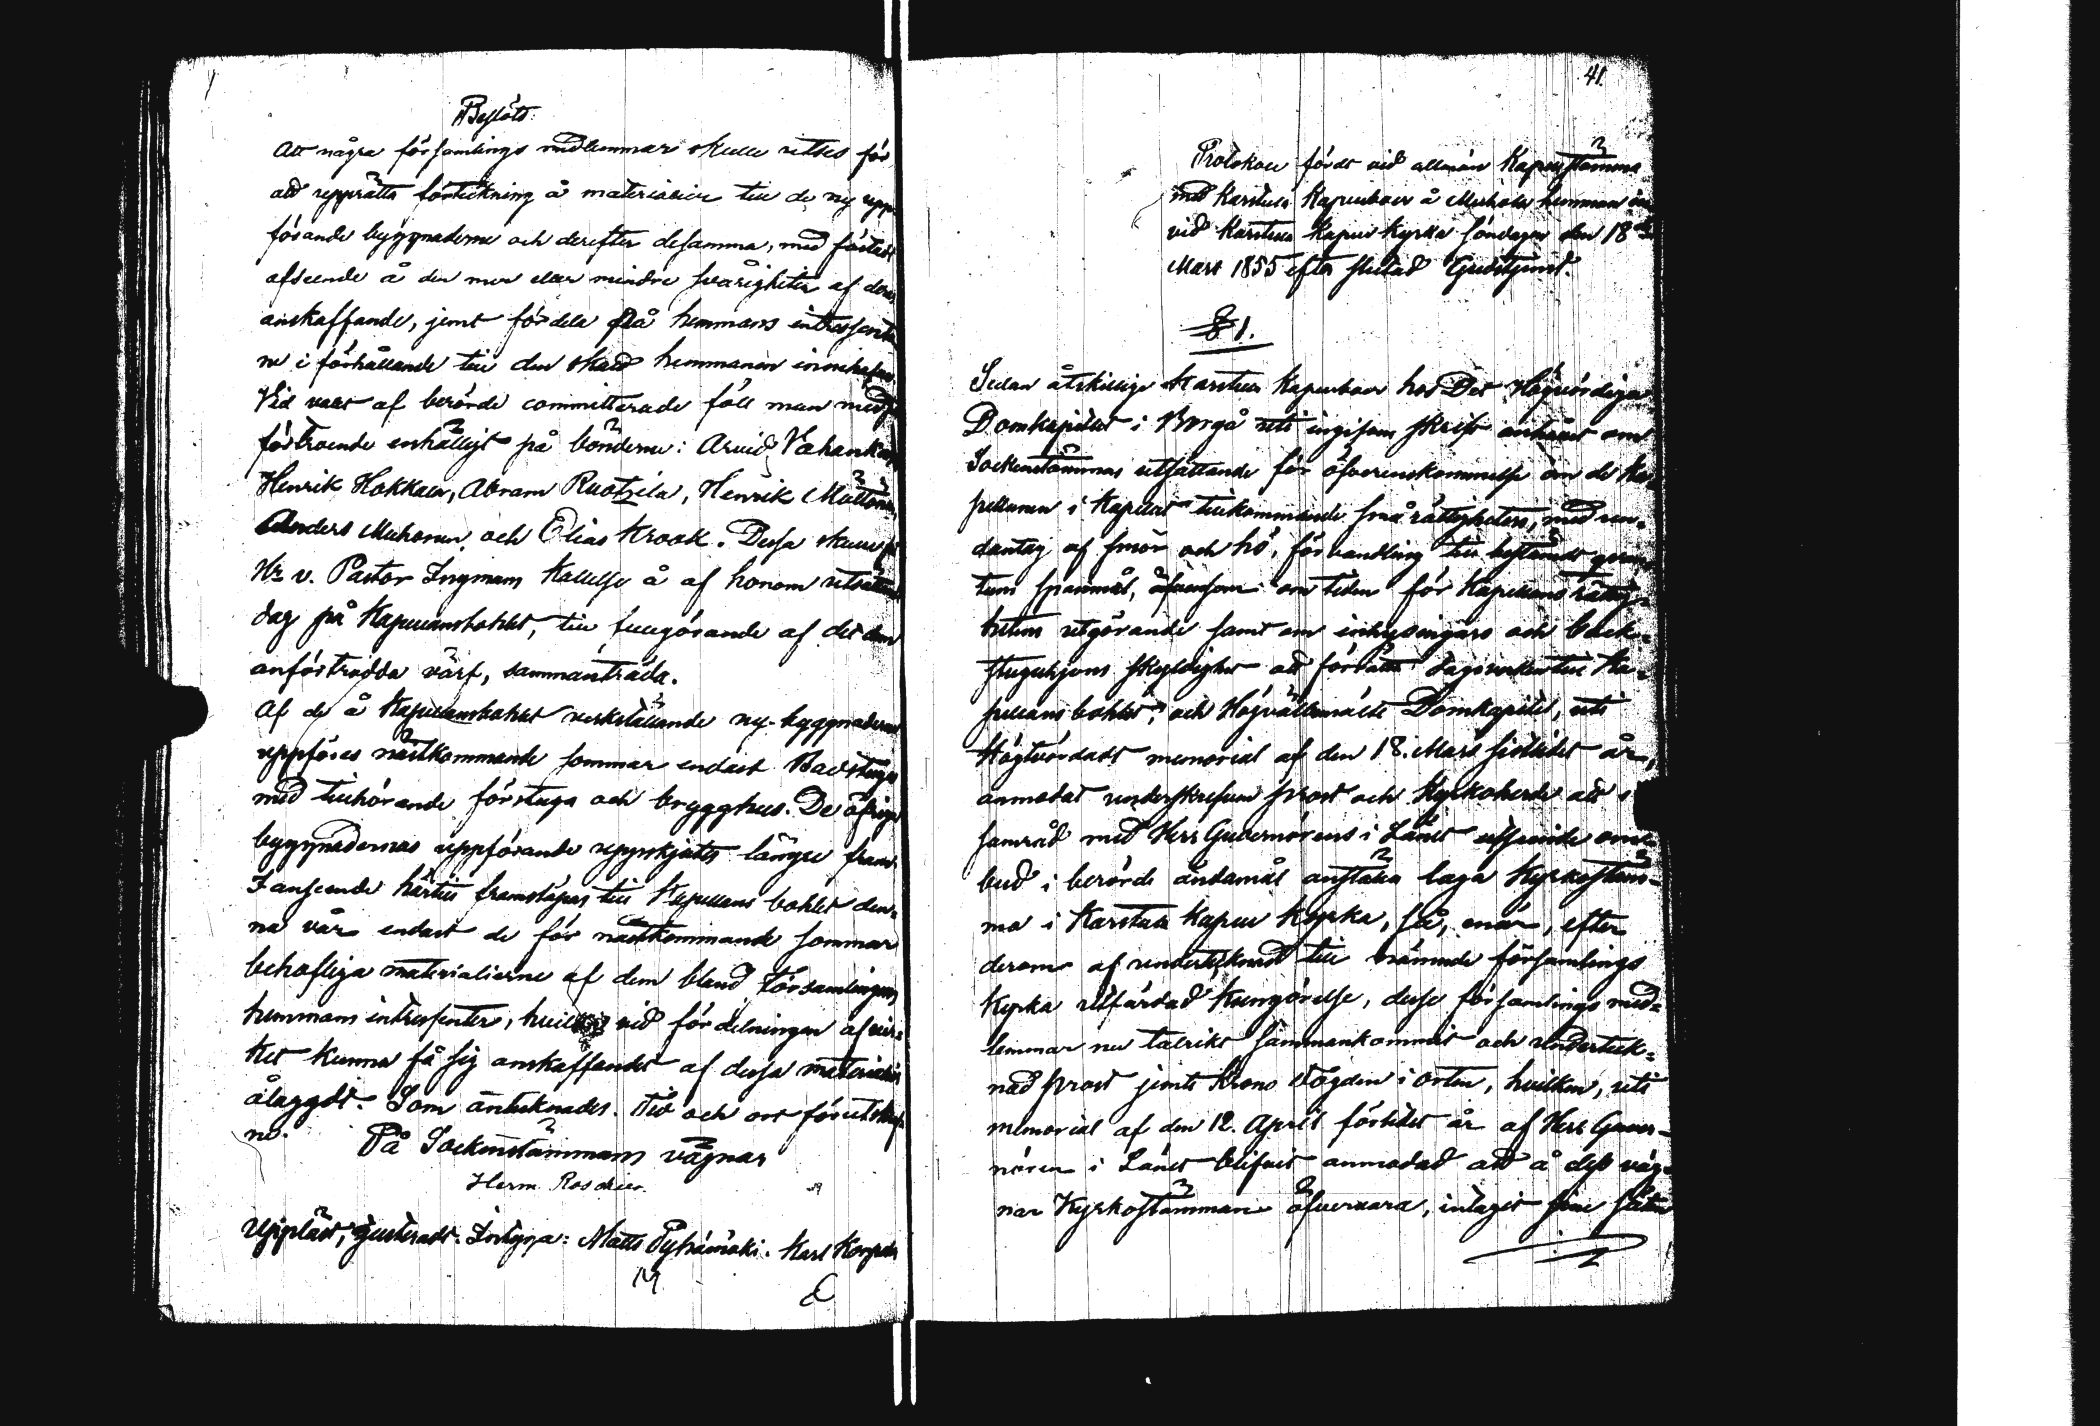 Beslöts:
Att några församlings medlemmar skulle utses för
att upprätta förteckning å materialier till de ny upp-
förande byggnaderne och derefter desamma, med fästadt
afseende å den mer eller mindre svårigheten af deras
anskaffande, jemt fördela på hemmans intressenter-
ne i förhållande till den skatt hemmanen innehafva.
Vid valet af berörde committerade föll man med
förtroende enhälligt på bönderne: Arvid Vahanka,
Henrik Hokkala, Abram Ruotzila, Henrik Mattona,
Anders Muhonen och Elias Krook. Dessa skulle på
Hr v. Pastor Ingmans kallelse å af honom utsatt
dag på Kapellansbohlet, till fullgörande af det dem
anförtrodda värf, sammanträda.
Af de å Kapellansbohlet verkställande ny-byggnaderne
uppföres nästkommande sommar endast Badstuga
med tillhörande förstuga och brygghus. De öfriga
byggnadernas uppförande uppskjutes längre fram.
I anseende härtill framsläpas till Kapellans bohlet den-
na vår endast de för nästkommande sommar
behöfliga materialierne af dem bland Församlingens
hemmans intressenter, hvilka vid fördelningen af vir-
ket kunna få sig anskaffandet af dessa materialier
ålaggdt. Som antecknades. Tid och ort förutskref-
ne.
På Sockenstämmans vägnar
Herm. Roschier.
Uppläst, justeradt. Intyga: Matts Pyhämäki. Karl Korpela
41.
Protokoll fördt vid allmän Kapellstämma
med Karstula Kapellboer å Muhola hemman in-
vid Karstula Kapell Kyrka söndagen den 18de
Mars 1855 efter slutad Gudstjenst.
§ 1.
Sedan åtskillige Karstula Kapellboer hos Det Högvördiga
Domkapitlet i Borgå uti ingifven skrift anhållit om
Sockenstämmas utsättande för öfverenskommelse om de Ka-
pellanen i Kapellet tillkommande små rättigheters, med un-
dantag af smör och hö, förvandling till bestämdt quan-
tum spannmål, äfvensom om tiden för Kapellans rättig-
hetens utgörande samt om inhysingars och back-
stuguhjons skyldighet att förrätta dagsverken till Ka-
pellans bohlet; och Högvälbemälte Domkapitel, uti
Högtvördadt memorial af den 18. Mars sistlidet år,
anmodat underskrefven Prost och Kyrkoherde att i
samråd med Herr Guvernörens i Länet utseende om-
bud i berörde ändamål anställa laga Kyrkostäm-
ma i Karstula Kapell Kyrka, så, enär, efter
derom af undertecknad till nämnde församlings
Kyrka utfärdad kungörelse, desse församlings med-
lemmar nu talrikt sammankommit och underteck-
nad Prost jemte Krono Fogden i orten, hvilken, uti
memorial af den 12. April förlidet år af Herr Guver-
nören i Länet blifvit anmodad att å dess väg-
nar Kyrkostämman öfvervara, intagit sine säten